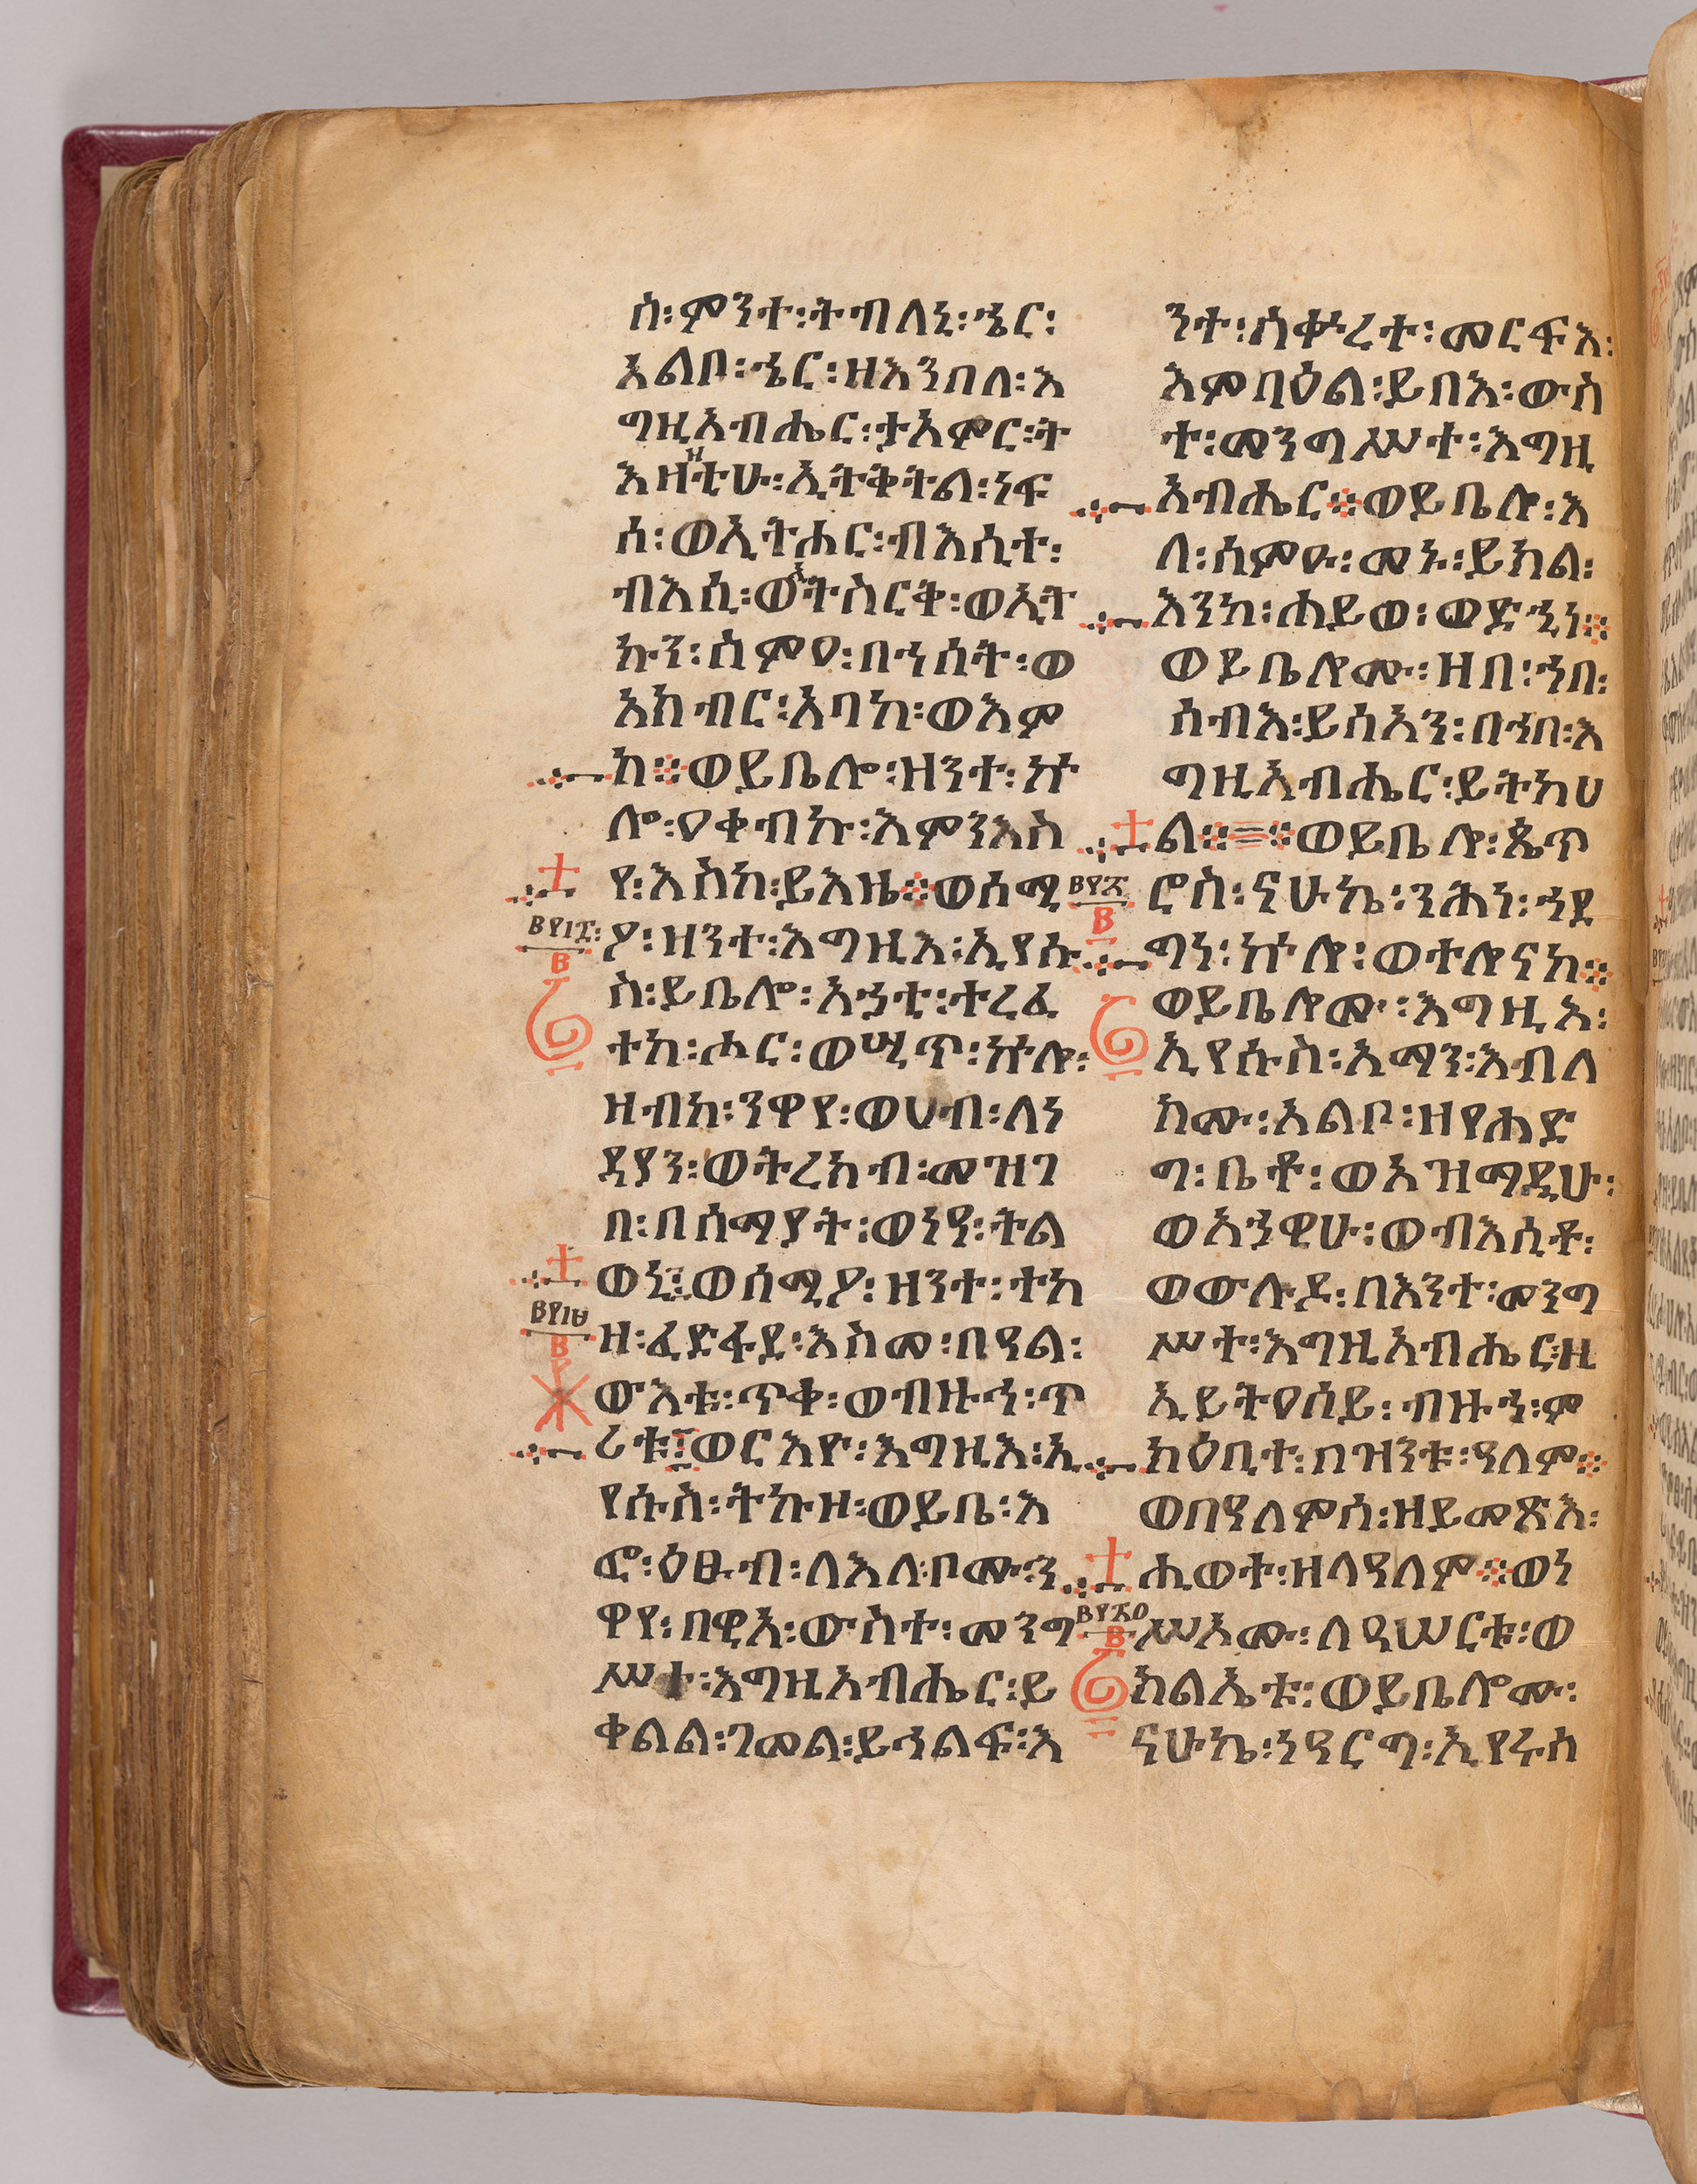 ስ፡ምንተ፡ትብለኒ፡ኄር፡
አልቦ፡ኄር፡ዘእንበለ፡እ
ግዚአብሔር፡ታአምር፡ት
እዛዛቲሁ፡ኢትቅትል፡ነፍ
ሰ፡ወኢትሑር፡ብእሲተ፡
ብእሲ፡ወኢትስርቅ፡ወኢት
ኩን፡ስምዐ፡በሐሰት፡ወ
አክብር፡አባከ፡ወእም
ከ፨ወይቤሎ፡ዝንተ፡ኵ
ሎ፡ዐቀብኩ፡እምንእስ
የ፡እስከ፡ይእዜ፨ወሰሚ
ዖ፡ዘንተ፡እግዚእ፡ኢየሱ
ስ፡ይቤሎ፡አኃቲ፡ተረፈ
ተከ፡ሑር፡ወሢጥ፡ኵሎ፡
ዘብከ፡ንዋየ፡ወሀብ፡ለነ
ዳያን፡ወትረከብ፡መዝገ
በ፡በሰማያት፡ወነዓ፡ትል
ወኒ፤ወሰሚዖ፡ዘንተ፡ተከ
ዘ፡ፈድፋደ፡እስመ፡በዓል፡
ውእቱ፡ጥቀ፡ወብዙኅ፡ጥ
ሪቱ፤ወርእዮ፡እግዚእ፡ኢ
የሱስ፡ትኩዞ፡ወይቤ፡እ
ፎ፡ዕፁብ፡ለእለ፡ቦሙ፡ን
ዋየ፡በዊእ፡ውስተ፡መንግ
ሥተ፡እግዚአብሔር፡ይ
ቀልል፡ገመል፡ይኅልፍ፡እ
ንተ፡ስቍረተ፡መርፍእ፡
እምባዕል፡ይበእ፡ውስ
ተ፡መንግሥተ፡እግዚ
አብሔር፨ወይቤሉ፡እ
ለ፡ሰምዑ፡መኑ፡ይክል፡
እንከ፡ሐይወ፡ወድኂነ፨
ወይቤሎሙ፡ዘበ፡ኀበ፡
ሰብእ፡ይሰአን፡በኀበ፡እ
ግዚአብሔር፡ይትከሀ
ል፨፨ወይቤሎ፡ጴጥ
ሮስ፡ናሁኬ፡ንሕነ፡ኀደ
ግነ፡ኵሎ፡ወተሎናከ፨
ወይቤሎሙ፡እግዚእ፡
ኢየሱስ፡አማን፡እብለ
ክሙ፡አልቦ፡ዘየሐድ
ግ፡ቤቶ፡ወአዝማዲሁ፡
ወአኀዊሁ፡ወብእሲቶ፡
ወውሉዶ፡በእንተ፡መንግ
ሥተ፡እግዚአብሔር፡ዘ
ኢይትዐሰይ፡ብዙኀ፡ም
ክዕቢተ፡በዝንቱ፡ዓለም፨
ወበዓለምሰ፡ዘይመጽእ፡
ሕይወተ፡ዘላዓለም፨ወነ
ሥአሙ፡ለዓሠርቱ፡ወ
ክልኤቱ፡ወይቤሎሙ፡
ናሁኬ፡ነዓርግ፡ኢየሩሰ